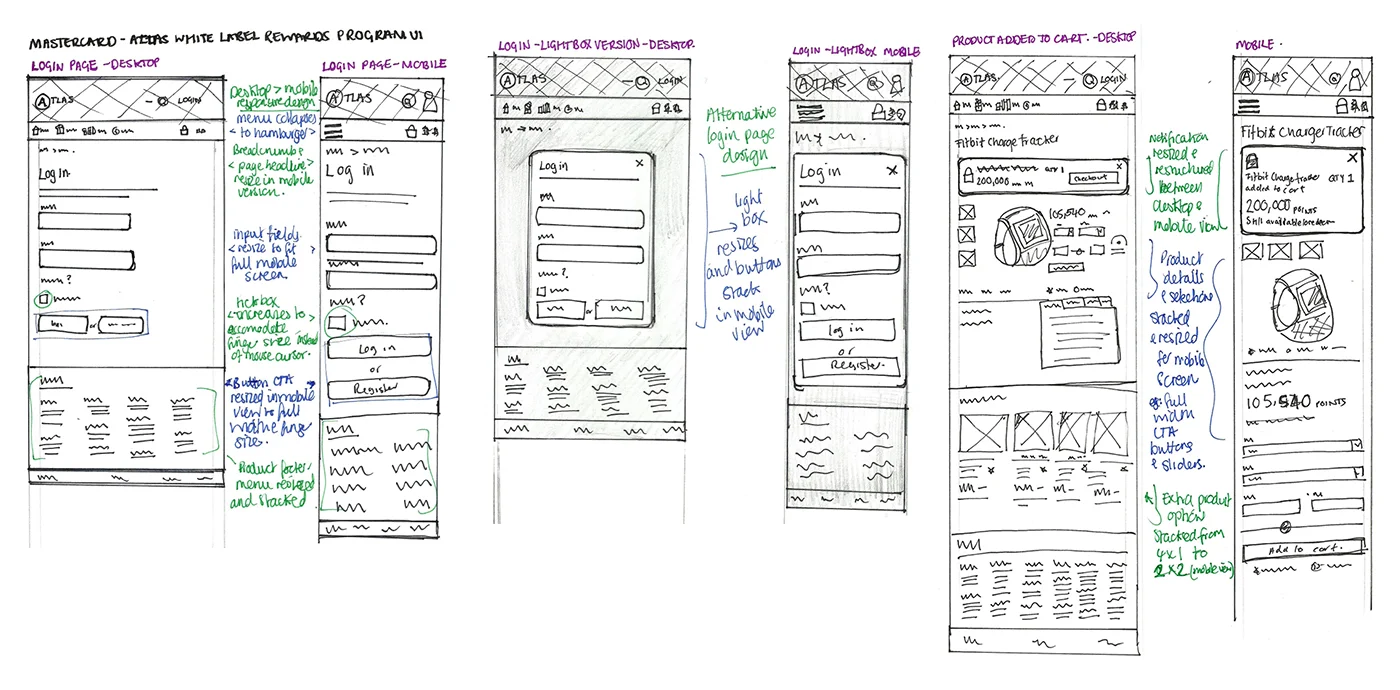 MASTERCARD - ATLAS WHITE LABEL REWARDS PROGRAM UI
LOGIN PAGE - DESKTOP
ATLAS
LOGIN
Log In
or
Desktop > mobile
responsive design
menu collapses
to hamburger
Breadcrumb &
page headline
resize in mobile
version.
input fields
resize to fit
full mobile
screen
tickbox
increases to
accomodate
finger size instead
of mouse cursor.
Button CTA
resized in mobile
view to full
width & finger
size.
Product footer
menu resized
and stacked
LOGIN PAGE - MOBILE
ATLAS
Log in
Log in
or
Register
LOGIN - LIGHTBOX VERSION - DESKTOP.
ATLAS
LOGIN
Log in
x
or
Alternative
login page
design
light
box
resizes
and buttons
stack
in mobile
view
LOGIN - LIGHTBOX MOBILE
ATLAS
Log in
x
log in
or
Register.
PRODUCT ADDED TO CART. - DESKTOP
ATLAS
LOGIN
Fitbit Charge Tracker
QTY 1
x
200,000
Checkout
105,540
Notification
resized &
restructured
between
desktop &
mobile view
Product
details
& selections
stacked
& resized
for mobile
screen
eg: full
width
CTA
buttons
& sliders.
Extra product
option
stacked from
4x1 to
2x2 (mobile view)
MOBILE.
ATLAS
Fitbit Charge Tracker
x
Fitbit Charge tracker QTY 1
added to cart
200,000 POINTS
Still available to redeem
105,540 POINTS
Add to cart.